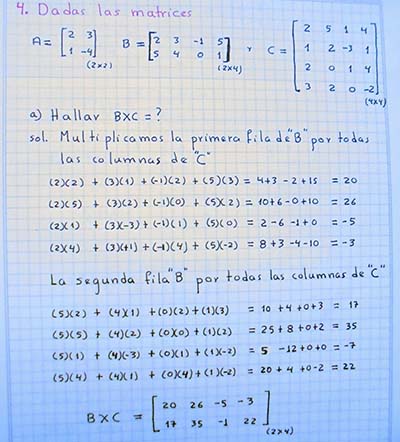 4. Dadas las matrices
A = [2 3; 1 -4] (2x2) B = [2 3 -1 5; 5 4 0 1] (2x4) y C = [2 5 1 4; 1 2 -3 1; 2 0 1 4; 3 2 0 -2] (4x4)
a) Hallar BXC = ?
sol. Multiplicamos la primera fila de "B" por todas
las columnas de "C"
(2)(2) + (3)(1) + (-1)(2) + (5)(3) = 4+3 -2+15 = 20
(2)(5) + (3)(2) + (-1)(0) + (5)(2) = 10+6-0+10 = 26
(2)(1) + (3)(-3) + (-1)(1) + (5)(0) = 2 -6 -1+0 = -5
(2)(4) + (3)(+1) + (-1)(4) + (5)(-2) = 8+3-4-10 = -3
La segunda fila "B" por todas las columnas de "C"
(5)(2) + (4)(1) + (0)(2) + (1)(3) = 10 +4 +0+3 = 17
(5)(5) + (4)(2) + (0)(0) + (1)(2) = 25+8+0+2 = 35
(5)(1) + (4)(-3) + (0)(1) + (1)(-2) = 5 -12+0+0 = -7
(5)(4) + (4)(1) + (0)(4) + (1)(-2) = 20 +4 +0-2 = 22
BXC = [20 26 -5 -3; 17 35 -1 22] (2x4)